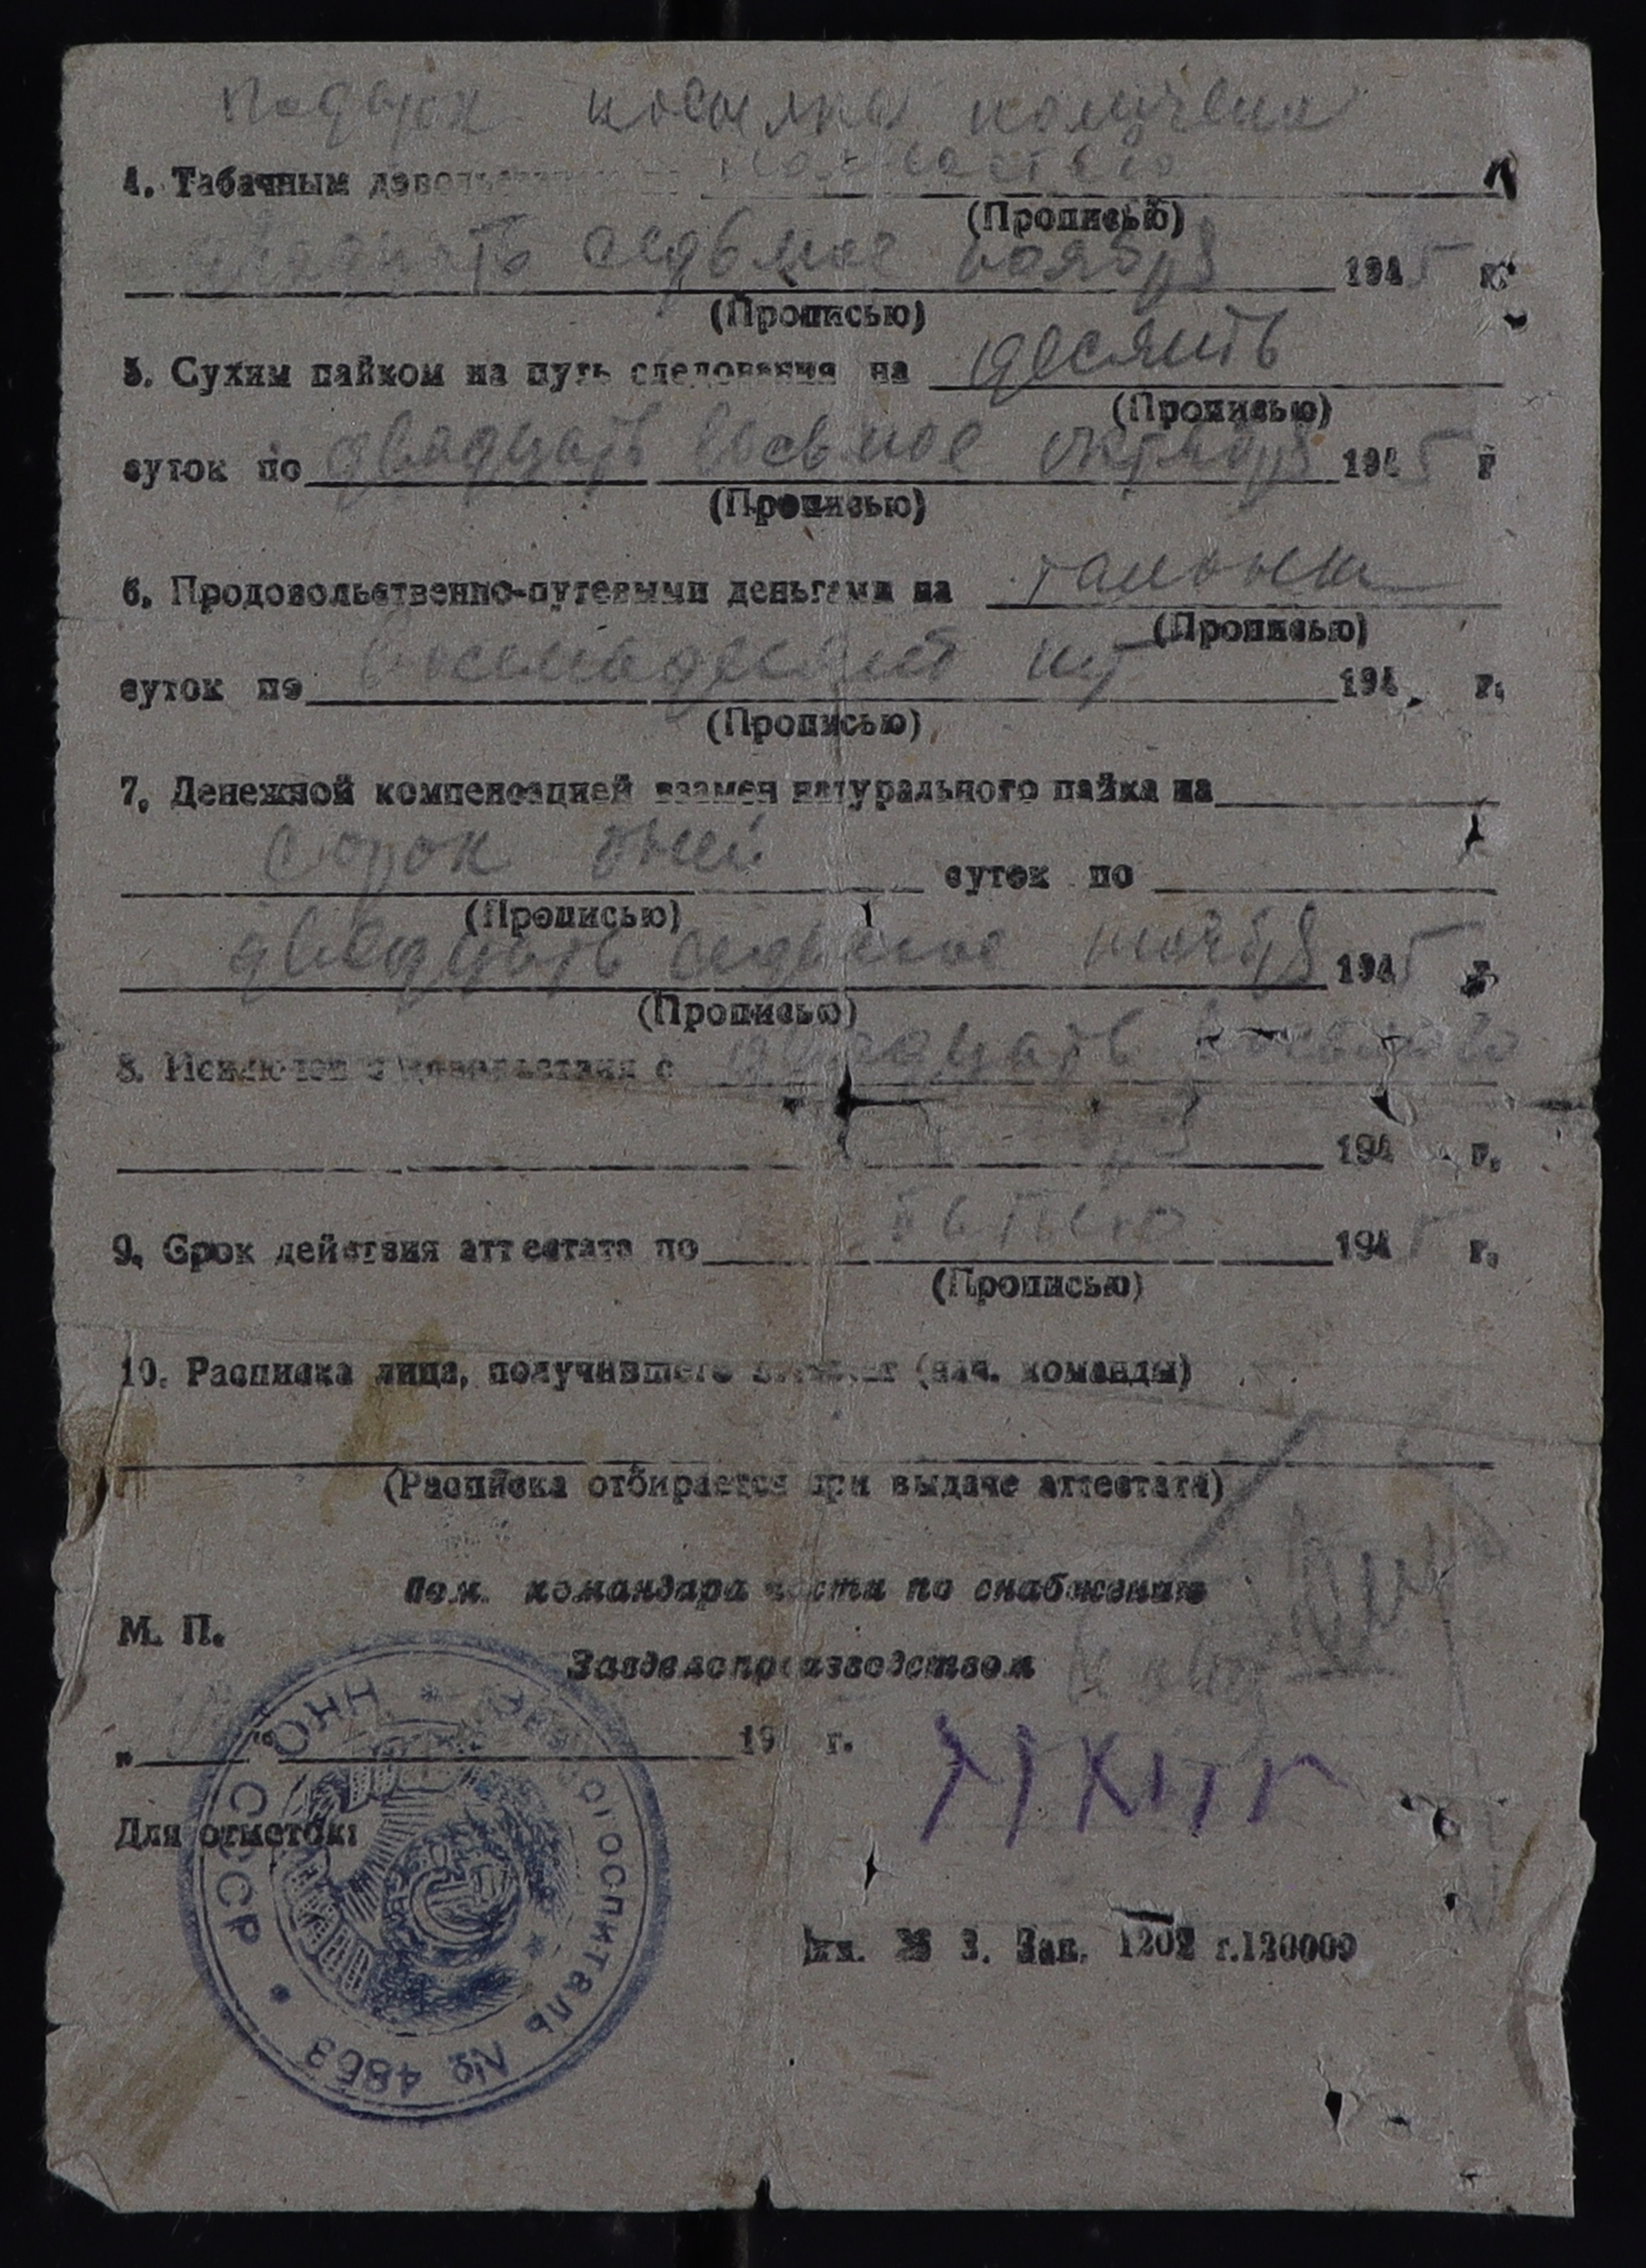 Подарок посылка получена
4. Табачным довольствием по полностью
(Прописью)
двадцать седьмое ноября 1945 г.
(Прописью)
5. Сухим пайком на путь следования на десять
(Прописью)
суток по двадцать восьмое октября 1945 г
(Прописью)
6. Продовольственно-путевыми деньгами на талоны
(Прописью)
суток по восемьдесят шт 194 г.
(Прописью)
7. Денежной компенсацией взамен натурального пайка на
сорок дней суток по
(Прописью)
двадцать седьмое ноября 1945 г
(Прописью)
8. Исключен с довольствия с двадцать восьмого
194 г.
9. Срок действия аттестата по 1945 г.
(Прописью)
10. Расписка лица, получившего аттестат (нач. команды)
(Расписка отбирается при выдаче аттестата)
Пом. командира части по снабжению
М. П.
Завделопроизводством
„ “ 194 г.
Для отметок:
НКО СССР * ЭВАКОГОСПИТАЛЬ № 4863
З. Зак. 1202 г.120000